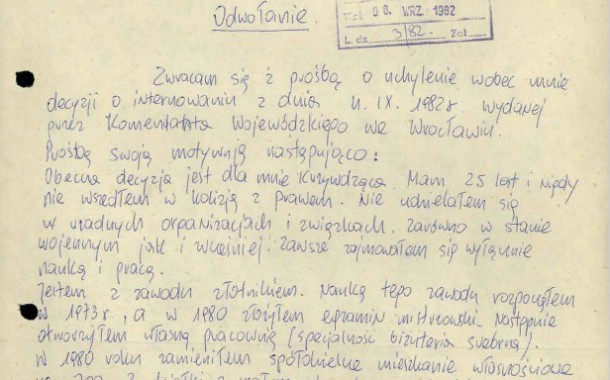 Odwołanie.
08. WRZ. 1982
L. dz. 3/82. Zał.
Zwracam się z prośbą o uchylenie wobec mnie
decyzji o internowaniu z dnia IX. 1982r. wydanej
przez Komendanta Wojewódzkiego we Wrocławiu.
Prośbę swoją motywuję następująco:
Obecna decyzja jest dla mnie krzywdząca. Mam 25 lat i nigdy
nie wszedłem w kolizję z prawem. Nie udzielałem się
w żadnych organizacjach i związkach. zarówno w stanie
wojennym jak i wcześniej. Zawsze zajmowałem się wyłącznie
nauką i pracą.
Jestem z zawodu złotnikiem. Naukę tego zawodu rozpocząłem
w 1973r, a w 1980 złożyłem egzamin mistrzowski. Następnie
otworzyłem własną pracownię (specjalność biżuteria srebrna).
W 1980 roku zamieniłem spółdzielcze mieszkanie własnościowe